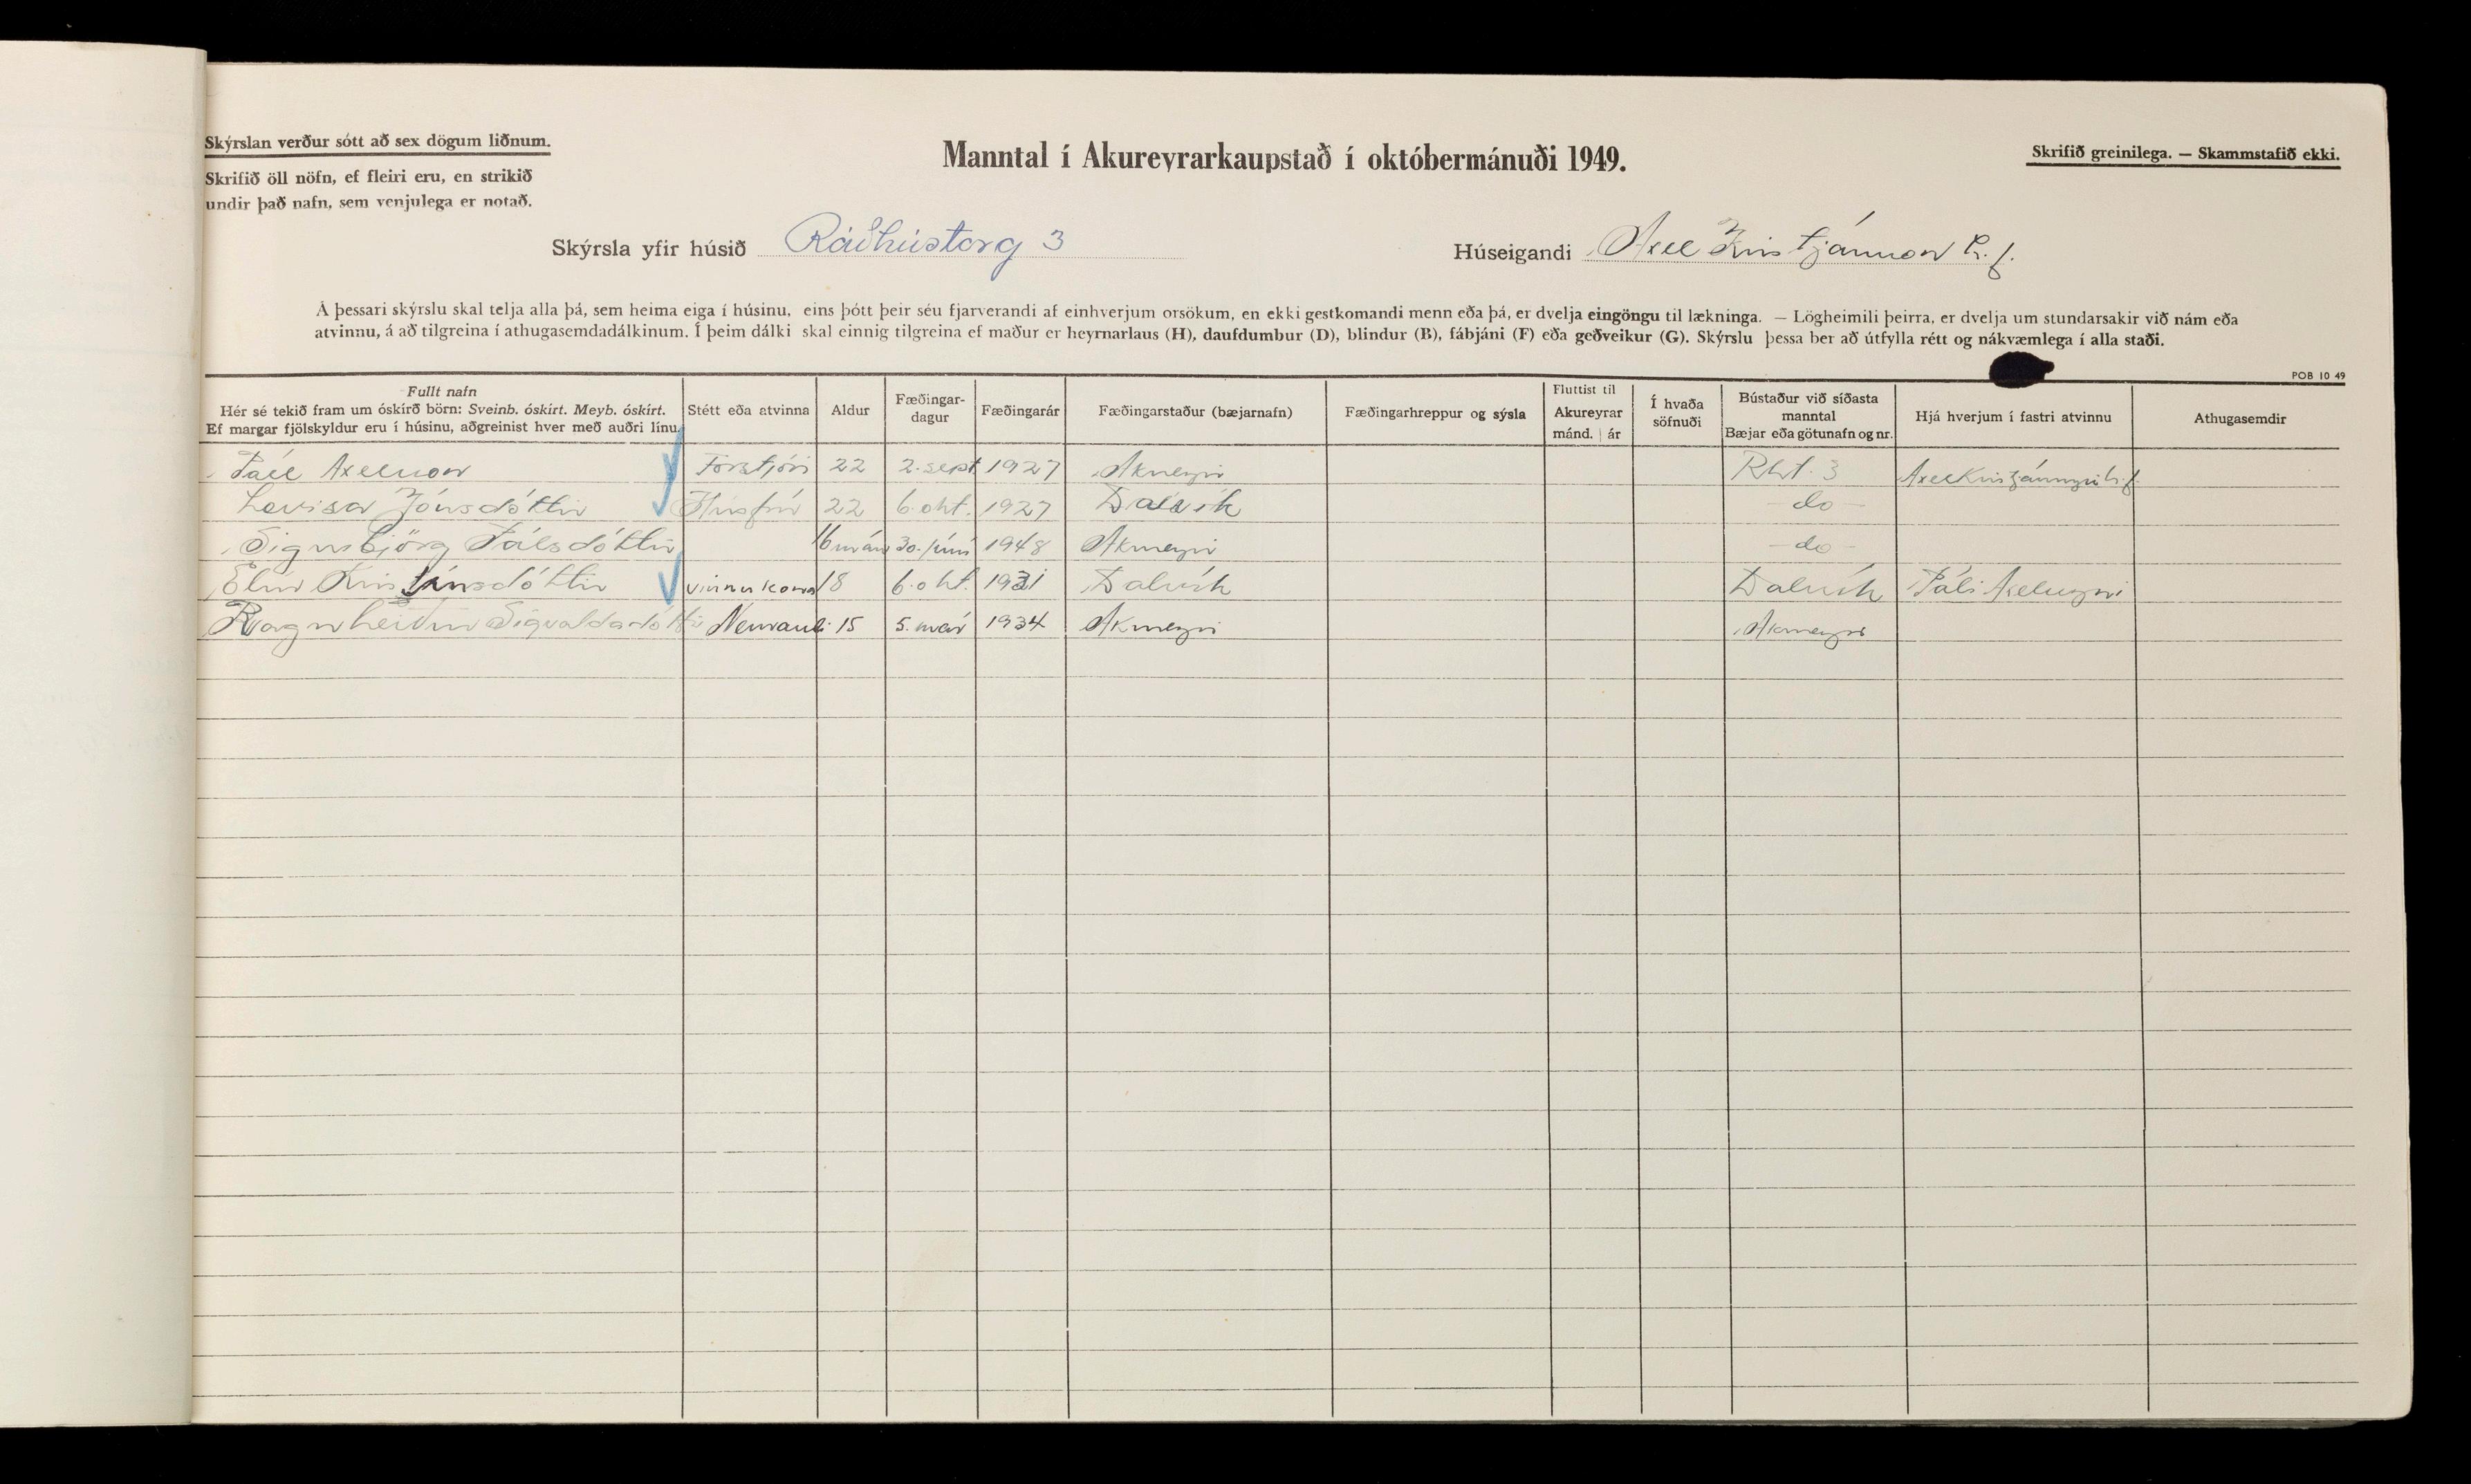 Skýrslan verður sótt að sex dögum liðnum.
Skrifið öll nöfn, ef fleiri eru, en strikið
undir það nafn, sem venjulega er notað.
Manntal í Akureyrarkaupstað í októbermánuði 1949.
Skrifið greinilega. — Skammstafið ekki.
Skýrsla yfir húsið Ráðhústorg 3
Húseigandi Axel Kristjánsson h.f.
Á þessari skýrslu skal telja alla þá, sem heima eiga í húsinu, eins þótt þeir séu fjarverandi af einhverjum orsökum, en ekki gestkomandi menn eða þá, er dvelja eingöngu til lækninga. — Lögheimili þeirra, er dvelja um stundarsakir við nám eða
atvinnu, á að tilgreina í athugasemdadálkinum. Í þeim dálki skal einnig tilgreina ef maður er heyrnarlaus (H), daufdumbur (D), blindur (B), fábjáni (F) eða geðveikur (G). Skýrslu þessa ber að útfylla rétt og nákvæmlega í alla staði.
POB 10 49
Fullt nafn
Hér sé tekið fram um óskírð börn: Sveinb. óskírt. Meyb. óskírt.
Ef margar fjölskyldur eru í húsinu, aðgreinist hver með auðri línu.
Stétt eða atvinna
Aldur
Fæðingar-
dagur
Fæðingarár
Fæðingarstaður (bæjarnafn)
Fæðingarhreppur og sýsla
Fluttist til
Akureyrar
mánd. ár
Í hvaða
söfnuði
Bústaður við síðasta
manntal
Bæjar eða götunafn og nr.
Hjá hverjum í fastri atvinnu
Athugasemdir
Páll Axelsson Forstjóri 22 2. sept 1927 Akureyri Rht. 3 Axel Kristjánssyni h.f.
Lovisa Jónsdóttir Húsfrú 22 6. okt. 1927 Dalvík - do -
Sigurbjörg Pálsdóttir 16 mán 30. júní 1948 Akureyri - do -
Elín Kristínsdóttir vinnukona 18 6. okt. 1931 Dalvík Dalvík Páli Axelssyni
Ragnheiður Sigvaldadóttir Nemandi 15 5. maí 1934 Akureyri Akureyri